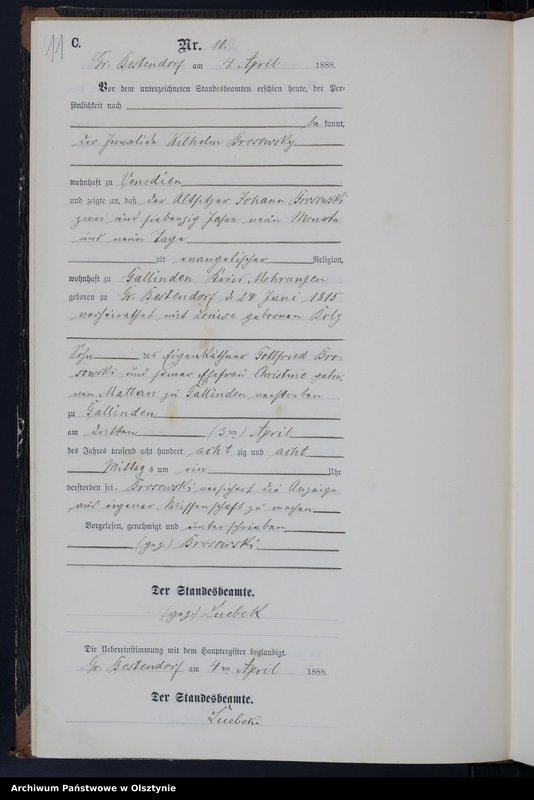 11
C.
Nr. 10.
Gr. Bestendorf am 4. April 1888.
Vor dem unterzeichneten Standesbeamten erschien heute, der Per-
sönlichkeit nach
be kannt,
der Invalide Wilhelm Brosowsky
wohnhaft zu Venedien
und zeigte an, daß der Altsitzer Johann Brosowski
zwei und siebenzig Jahre neun Monate
und neun Tage
alt evangelischer Religion,
wohnhaft zu Gallinden Kreis Mohrungen
geboren zu Gr. Bestendorf d 24 Juni 1815
verheirathet mit Louise gebornen Bolz
Sohn des Eigenkäthner Gottfried Bro-
sowski und seiner Ehefrau Christine gebor-
nen Mattern zu Gallinden verstorben
zu Gallinden
am dritten (3ten) April
des Jahres tausend acht hundert acht zig und acht
Mittags um ein Uhr
verstorben sei. Brosowski versichert die Anzeige
aus eigener Wissenschaft zu machen
Vorgelesen, genehmigt und unterschrieben
(gez.) Brosowski.
Der Standesbeamte.
(gez.) Luebek
Die Uebereinstimmung mit dem Hauptregister beglaubigt.
Gr. Bestendorf am 4ten April 1888.
Der Standesbeamte.
Luebek
Archiwum Państwowe w Olsztynie